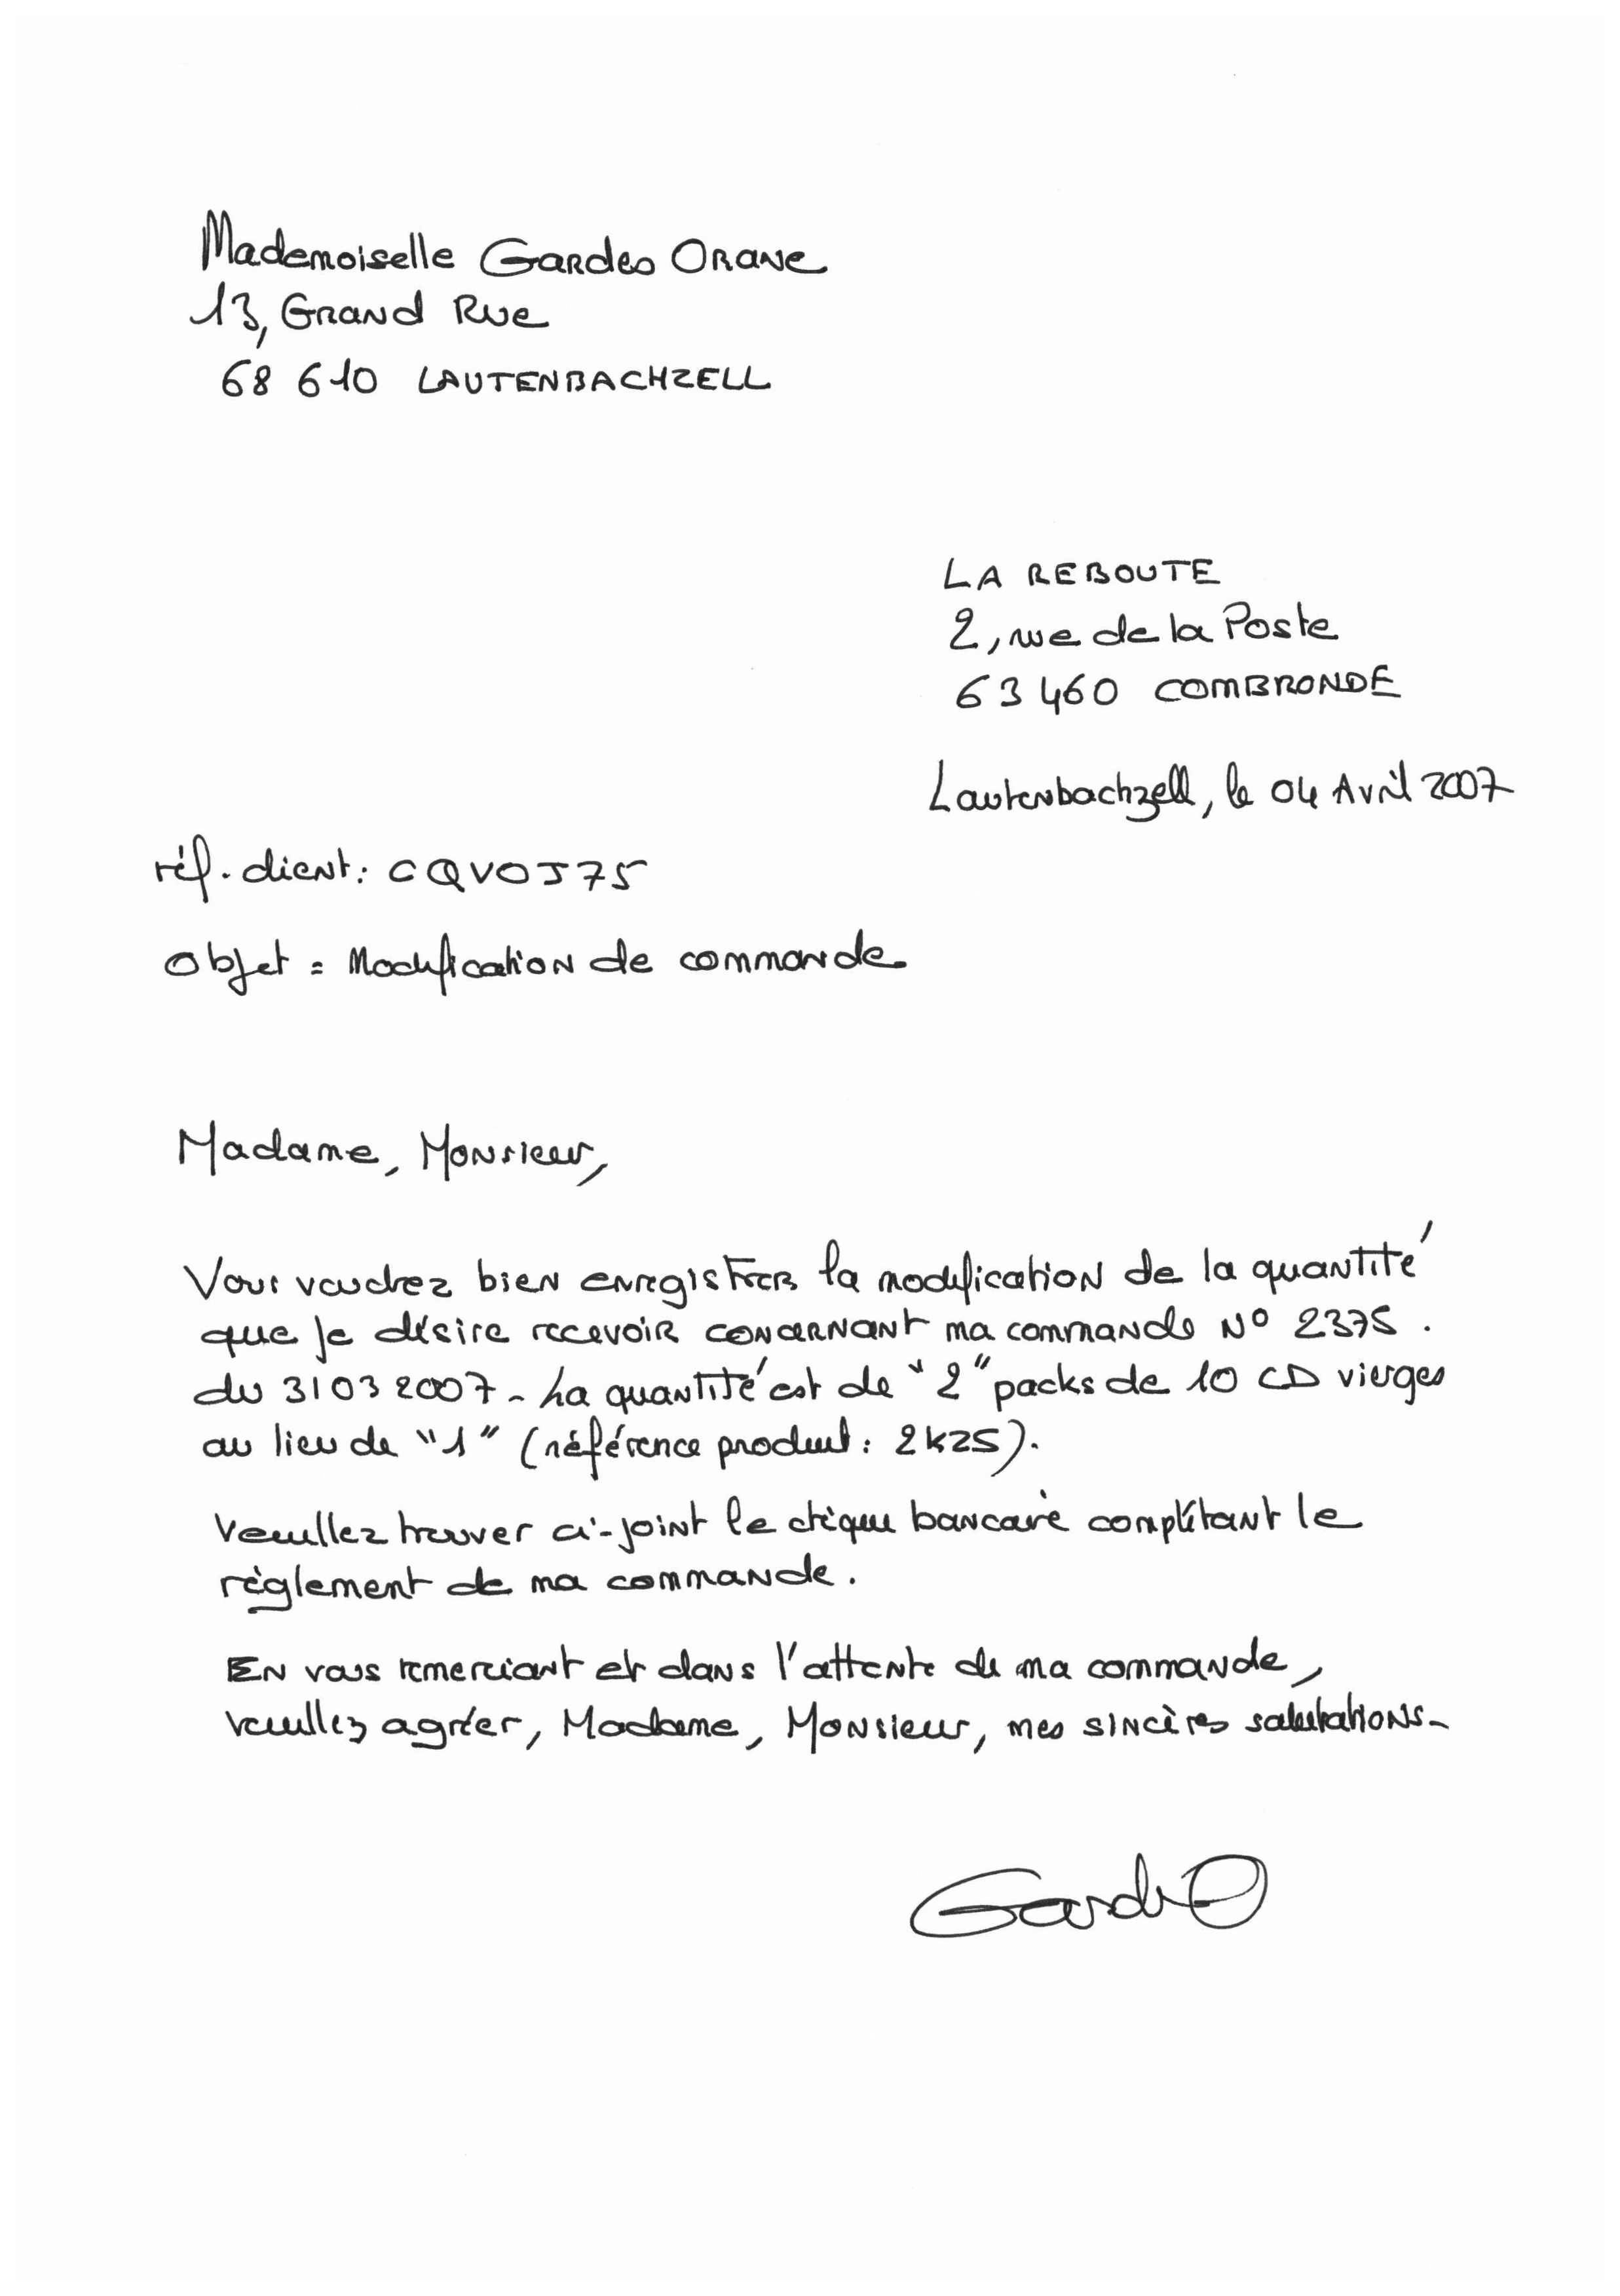 Mademoiselle Gardes Orane
13, Grand Rue
68 610 LAUTENBACHZELL
LA REBOUTE
2, rue de la Poste
63 460 COMBRONDE
Lautenbachzell, le 04 Avril 2007
réf. client : CQVOJ75
Objet = Modification de commande
Madame, Monsieur,
Vous voudrez bien enregistrer la modification de la quantité
que je désire recevoir concernant ma commande N° 2375 .
du 31 03 2007 - La quantité est de "2" packs de 10 CD vierges
au lieu de "1" (référence produit : 2K2S).
Veuillez trouver ci-joint le chèque bancaire complétant le
règlement de ma commande.
En vous remerciant et dans l'attente de ma commande,
veuillez agréer, Madame, Monsieur, mes sincères salutations-